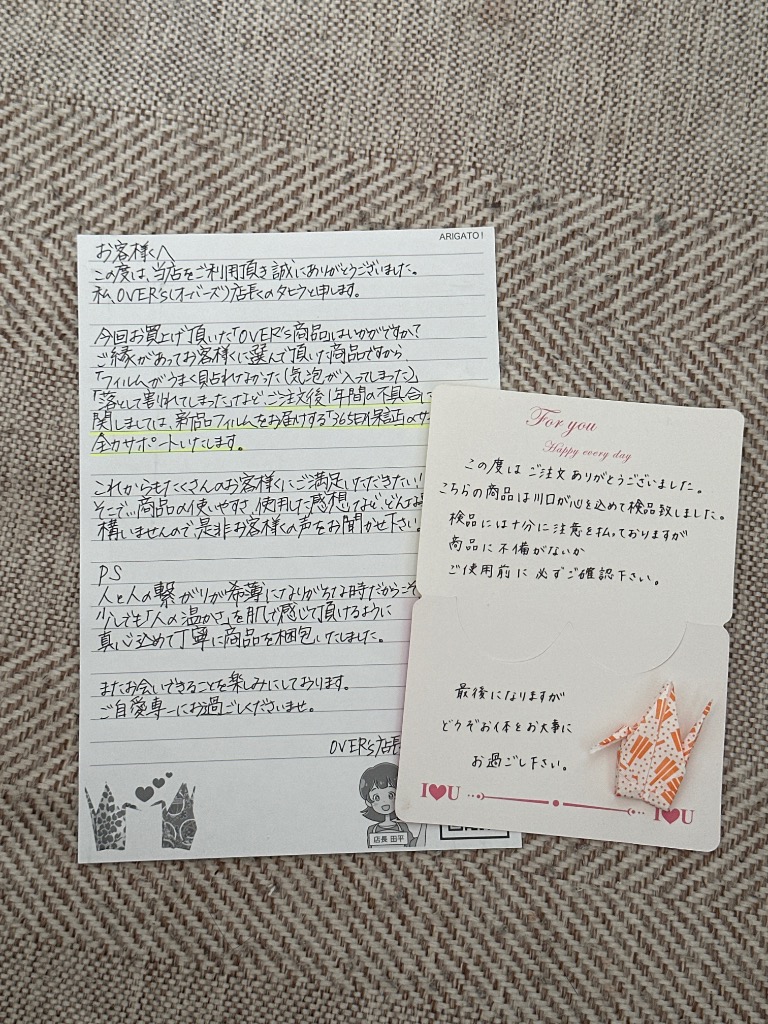 ARIGATO!
お客様へ
この度は、当店をご利用頂き誠にありがとうございました。
私OVER's(オーバーズ)店長のタヒラと申します。
今回お買上げ頂いた「OVER's商品」はいかがですか?
ご縁があってお客様に選んで頂いた商品ですから、
「フィルムがうまく貼れなかった(気泡が入ってしまった)」
「落として割れてしまった」など、ご注文後1年間の不具合に
関しましては、新品フィルムをお届けする「365日保証」の
全力サポートいたします。
これからもたくさんのお客様にご満足いただきたい!
そこで…商品の使いやすさ、使用した感想など、どんな
構いませんので、是非お客様の声をお聞かせ下さい
PS
人と人の繋がりが希薄になりがちな時だからこそ
少しでも「人の温かさ」を肌で感じて頂けるように
真心込めて丁寧に商品を梱包いたしました。
またお会いできることを楽しみにしております。
ご自愛専一にお過ごしくださいませ。
OVER's店長
店長 田平
For you
Happy every day
この度はご注文ありがとうございました。
こちらの商品は川口が心を込めて検品致しました。
検品には十分に注意を払っておりますが
商品に不備がないか
ご使用前に必ずご確認下さい。
最後になりますが
どうぞお体をお大事に
お過ごし下さい。
I♥U
I♥U